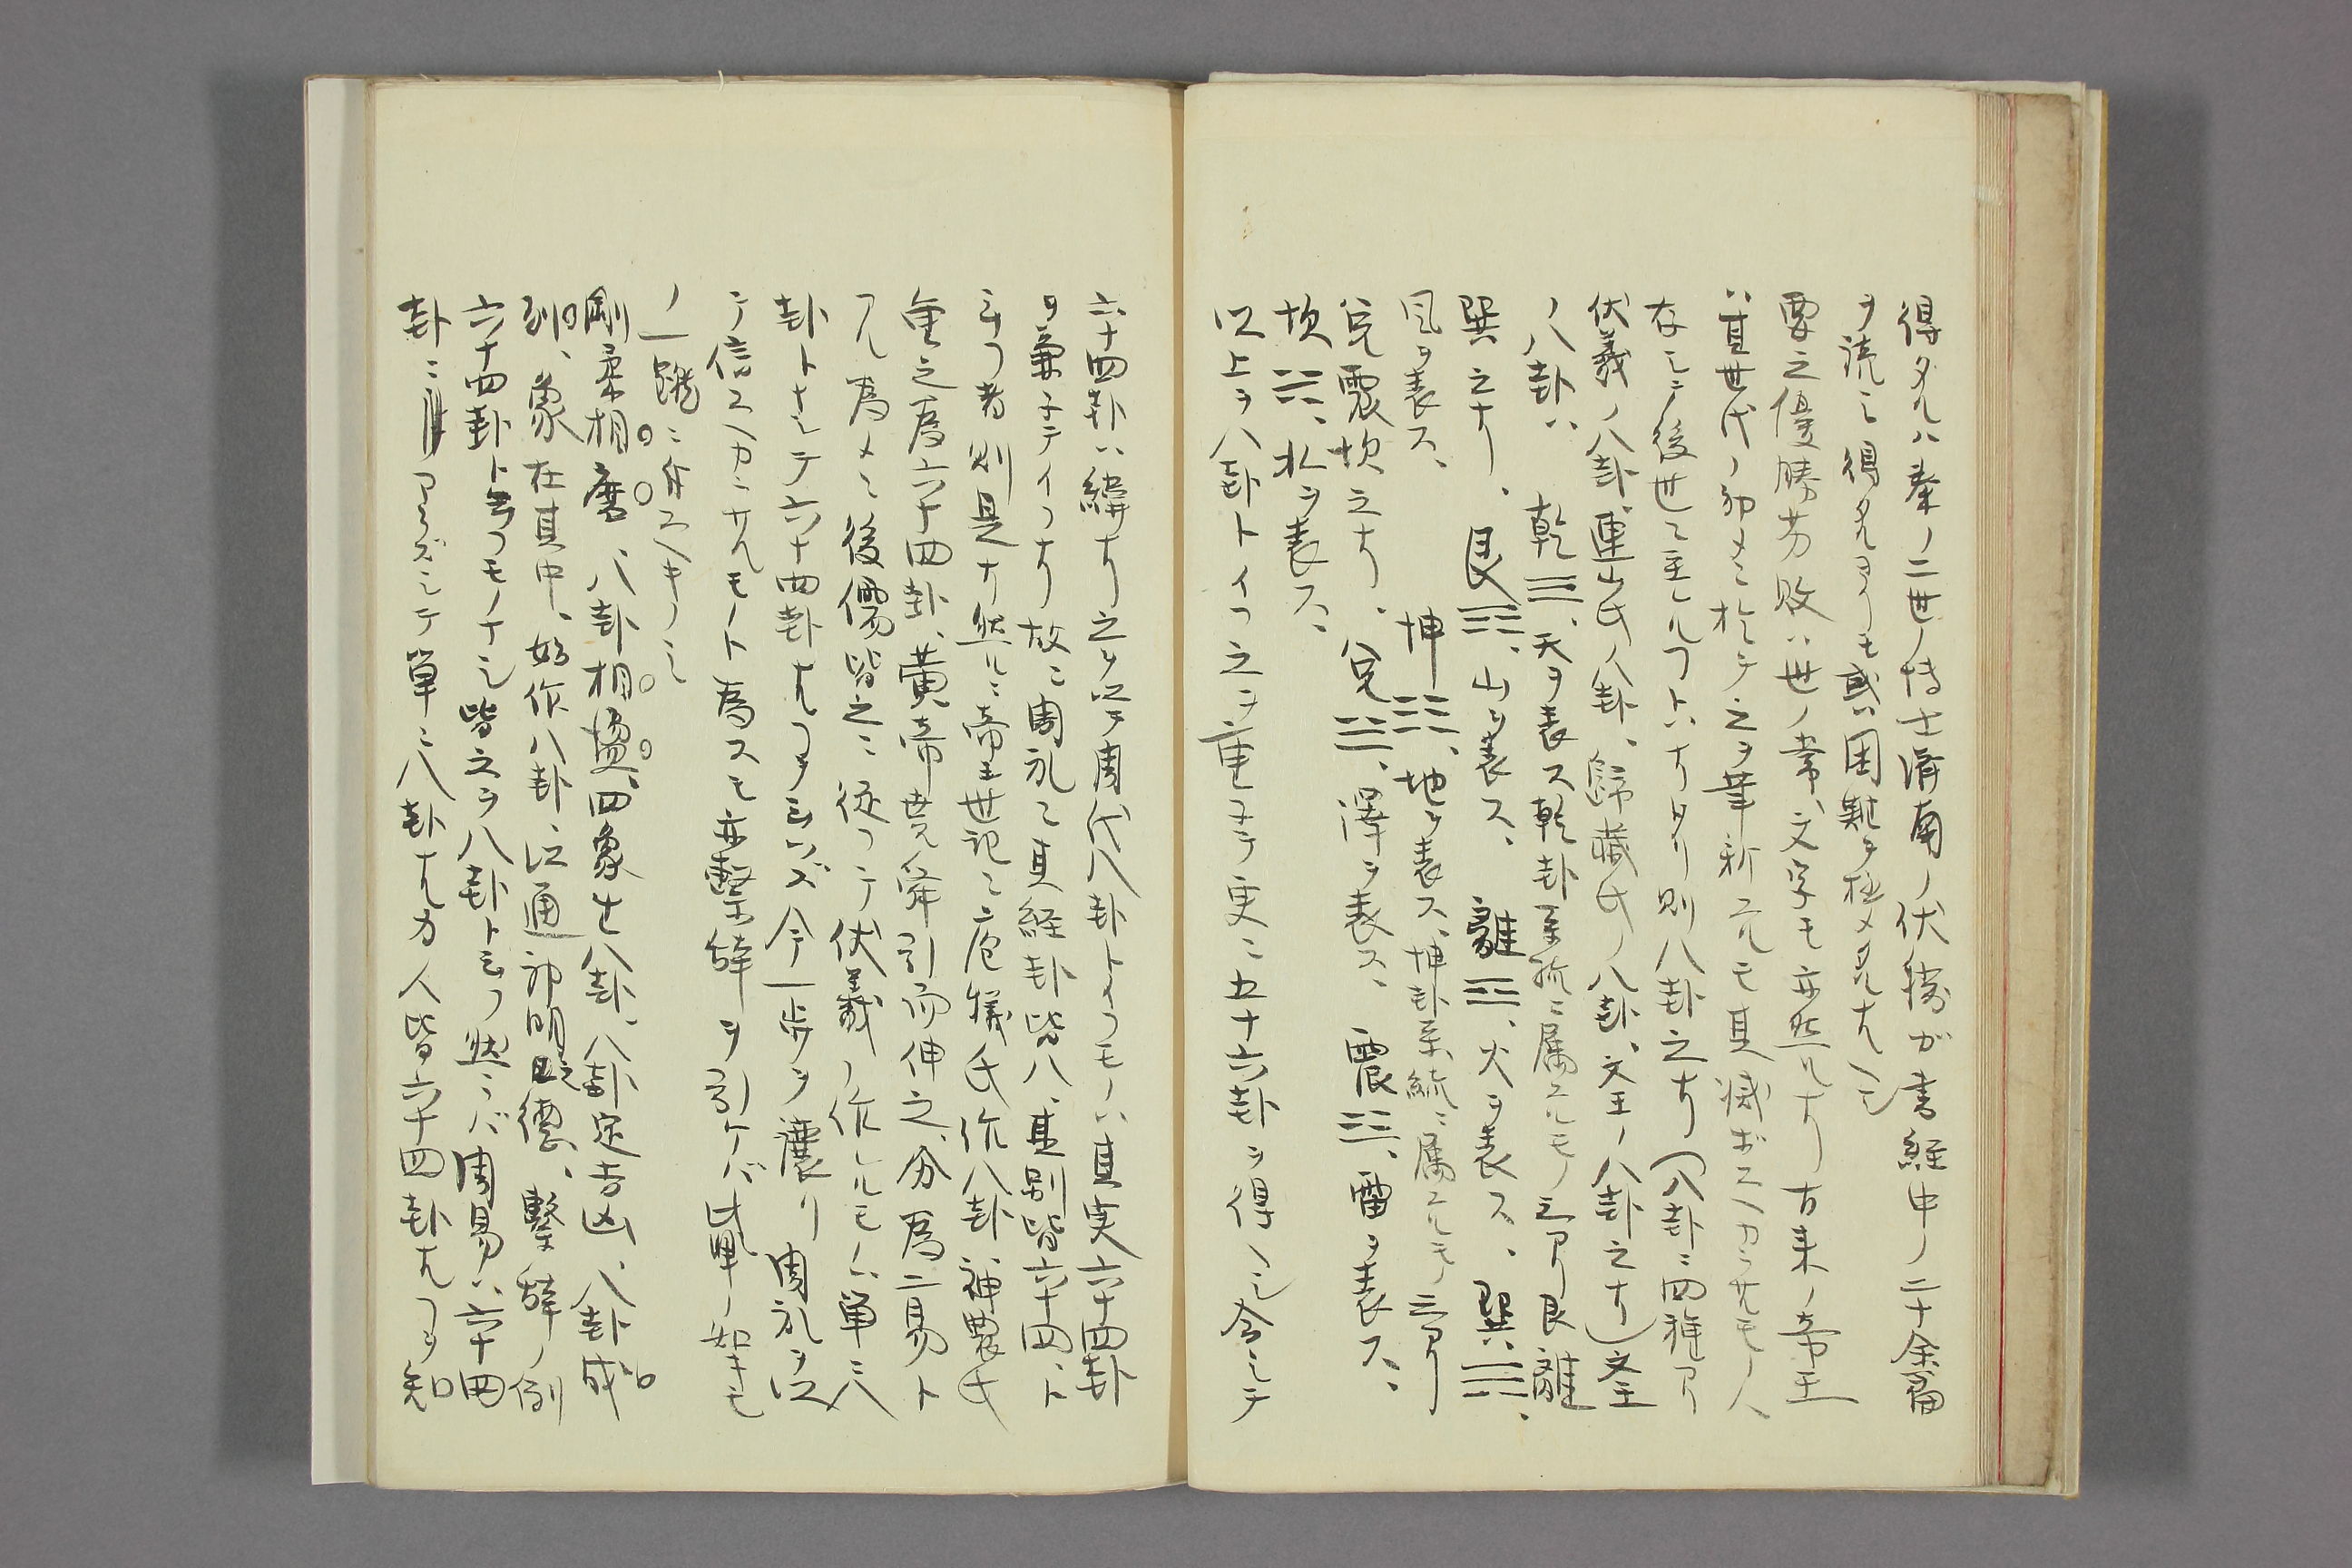 得タルハ秦ノ二世ノ博士済南ノ伏勝ガ書経中ノ二十余篇
ヲ読ミ得タルヨリモ或ハ困難ヲ極メタルナ
要之優勝劣敗ハ世ノ常、文字モ亦然ルナリ古来ノ帝王
ハ其世代ノ初メニ於テ之ヲ革新スルモ其滅ボスベカラザルモノハ
存シテ後世ニ至ルフトハナリタリ則八卦之ナリ(八卦ニ四種アリ
伏羲ノ八卦、連山氏ノ八卦、歸藏氏ノ八卦、文王ノ八卦之ナリ)文王
ノ八卦ハ 乾☰、天ヲ表ス乾卦系統ニ属スルモノ三アリ艮離
巽之ナリ、 艮☶、山ヲ表ス、 離☲、火ヲ表ス、 巽☴、
風ヲ表ス、 坤☷、地ヲ表ス、坤卦系統ニ属スルモノ三アリ
兌震坎之ナリ、 兌☱、澤ヲ表ス、 震☳、雷ヲ表ス、
坎☵、水ヲ表ス、
以上ヲ八卦トイフ之ヲ重子テ更ニ五十六卦ヲ得 合シテ
六十四卦ハ緯ナリ之ヲ以テ周代八卦トイフモノハ其実六十四卦
ヲ兼子テイフナリ故ニ周礼ニ其経卦皆八、其別皆六十四、ト
云フ者則是ナリ然ルニ帝王世記ニ庖犧氏作八卦、神農氏
重之為六十四卦、黄帝堯舜引而伸之、分為二易ト
アル為メニ後儒皆之ニ従フテ伏羲ノ作ルモノハ単ニ八
卦トナシテ六十四卦ナルフヲ云ハズ今一歩ヲ讓リ周礼ヲ以
テ信スベカラザルモノト為スモ亦繫辞ヲ引ケバ此軍ノ如キモ
ノ一蹴ニ弁スベキノミ
剛柔相摩、八卦相盪、四象生八卦、八卦定吉凶、八卦成
列、象在其中、始作八卦、以通神明之徳、繫辞ノ例
六十四卦ト云フモノナシ皆之ヲ八卦ト云フ然ラバ周易ハ六十四
卦ニアラズシテ単ニ八卦ナルカ人皆六十四卦ナルフヲ知